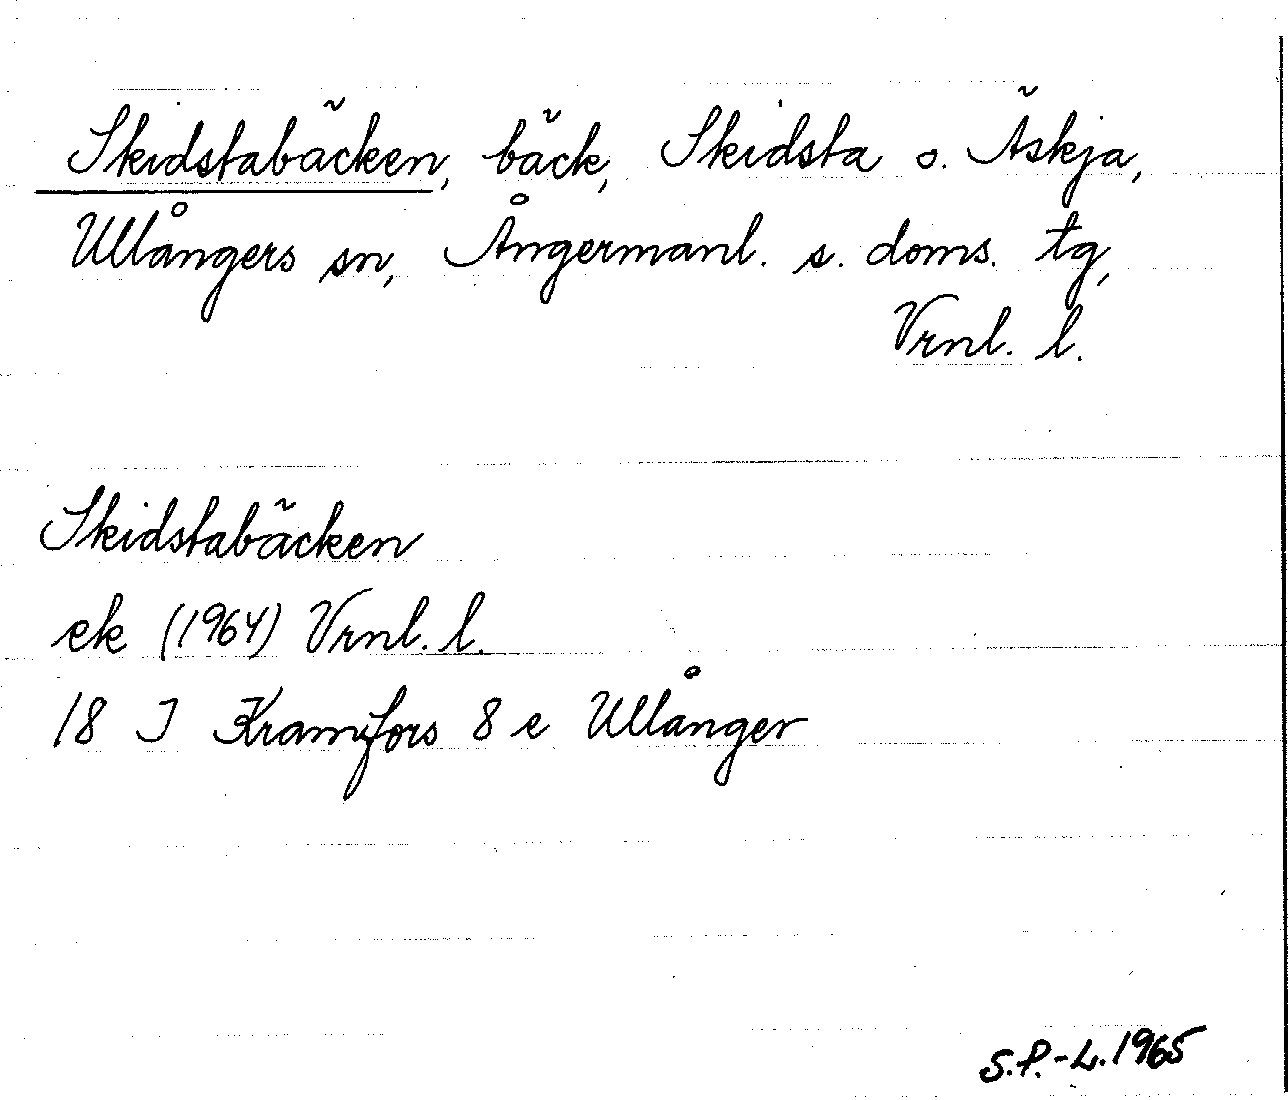 Skidstabäcken, bäck, Skidsta o. Äskja,
Ullångers sn, Ångermanl. s. doms. tg,
Vrnl. l.
Skidstabäcken
ek (1964) Vrnl. l.
18 J Kramfors 8 e Ullånger
S.P.-L. 1965